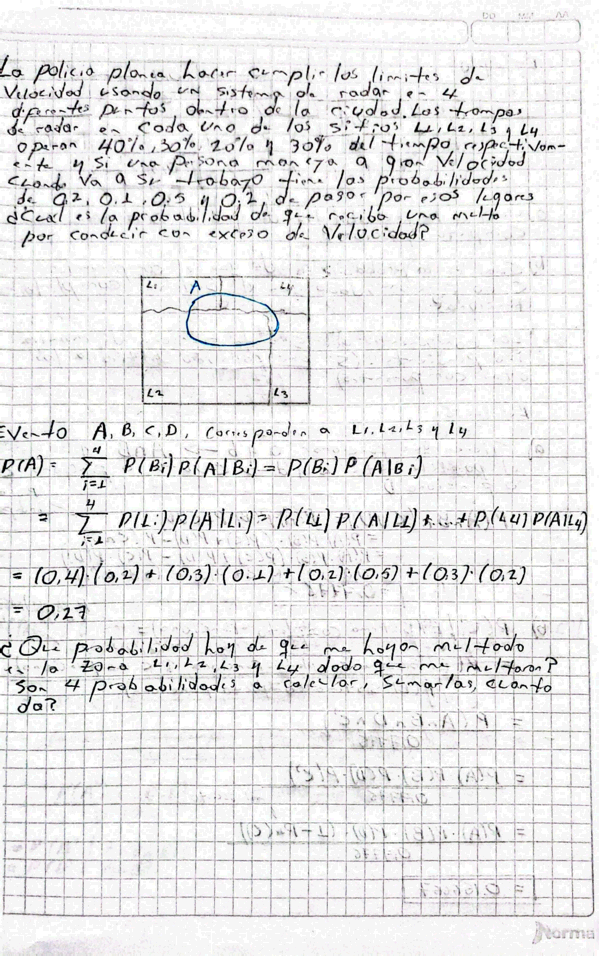 DD MM AA
La policia planea hacer cumplir los limites de
Velocidad usando un sistema de radar en 4
diferentes puntos dentro de la ciudad. Las trampas
de radar en cada uno de los sitios L1, L2, L3 y L4
operan 40%, 30%, 20% y 30% del tiempo, respectivam-
ente y si una persona maneja a gran Velocidad
cuando va a su trabajo tiene las probabilidades
de 0,2, 0,1, 0,5 y 0,2, de pasar por esos lugares
¿Cual es la probabilidad de que reciba una multa
por conducir con exceso de Velocidad?
L1 A L4
L2 L3
Evento A, B, C, D, Corresponden a L1, L2, L3 y L4
P(A) = ∑ 4 i=1 P(Bi) P(A|Bi) = P(Bi) P(A|Bi)
= ∑ 4 i=1 P(Li) P(A|Li) = P(L1) P(A|L1) + ... + P(L4) P(A|L4)
= (0,4)·(0,2) + (0,3)·(0.1) + (0,2)·(0,5) + (0,3)·(0,2)
= 0,27
¿Que probabilidad hay de que me hayan multado
en la zona L1, L2, L3 y L4 dado que me multaron?
Son 4 probabilidades a calcular, sumarlas, cuanto
da?
Norma